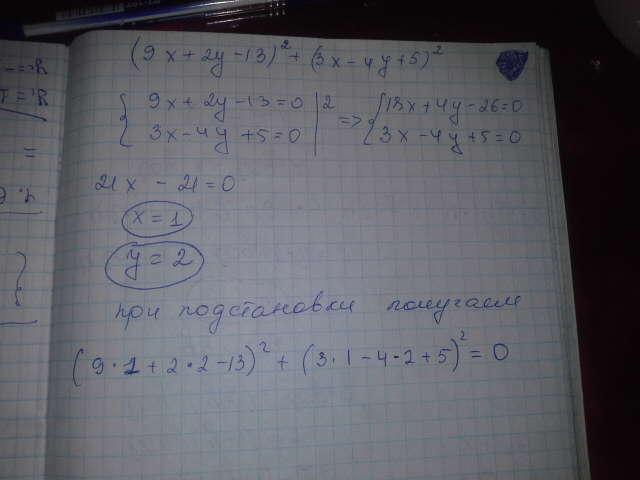 (9x+2y-13)²+(3x-4y+5)²
{ 9x+2y-13=0 |2 => { 18x+4y-26=0
3x-4y+5=0 3x-4y+5=0
21x - 21=0
x=1
y=2
при подстановки получаем
(9·1+2·2-13)²+(3·1-4·2+5)²=0